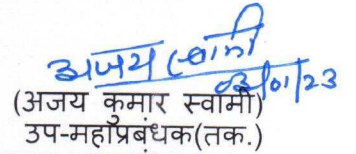 अजय स्वामी
(अजय कुमार स्वामी)
उप-महाप्रबंधक(तक.)